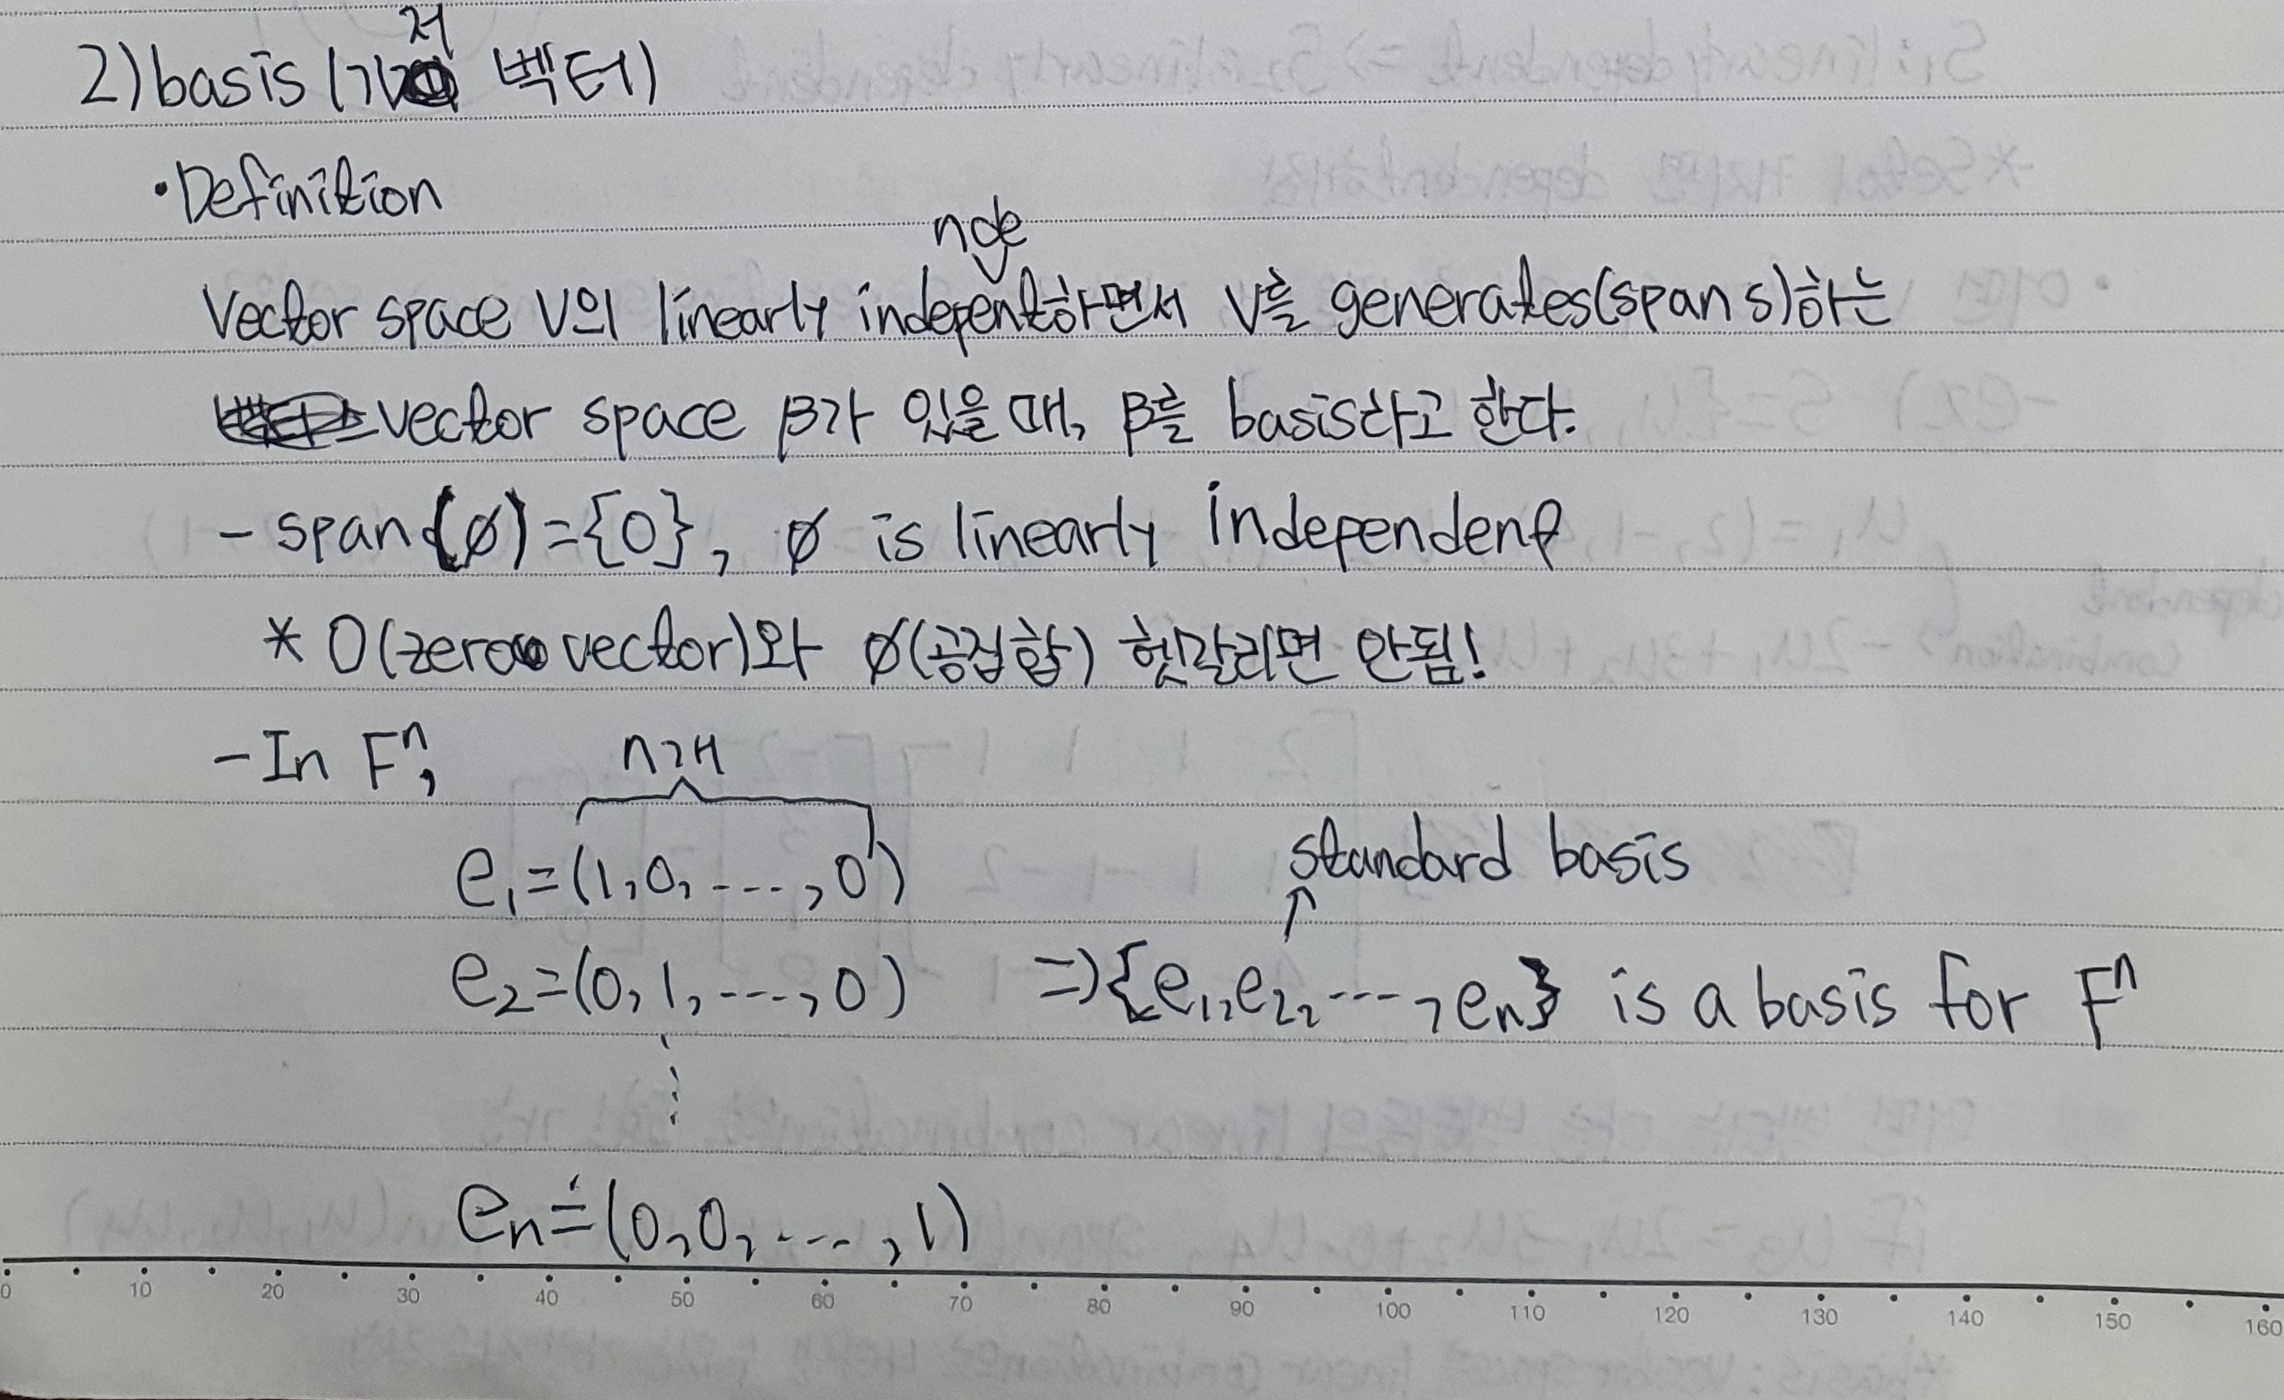 2) basis (기저 벡터)
·Definition
Vector space V의 linearly independent하면서 V를 generates(spans)하는
vector space β가 있을 때, β를 basis라고 한다.
- span(∅)={0}, ∅ is linearly independent
* 0(zero vector)와 ∅(공집합) 헷갈리면 안됨!
- In Fⁿ, n개
e₁=(1,0,----,0)
standard basis
↑
e₂=(0,1,----,0) =>{e₁,e₂,----,eₙ} is a basis for Fⁿ
⋮
eₙ=(0,0,----,1)
0 10 20 30 40 50 60 70 80 90 100 110 120 130 140 150 160